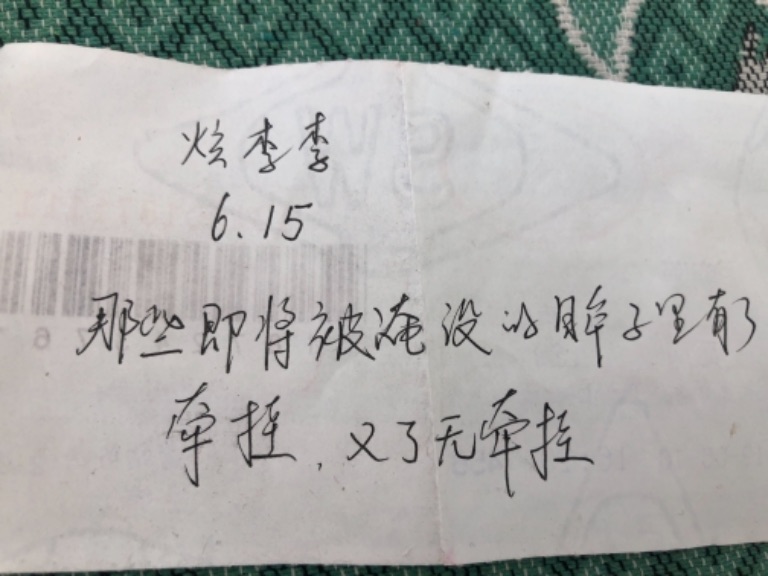 炫李李
6.15
那些即将被淹没的眸子里有了
牵挂，又了无牵挂